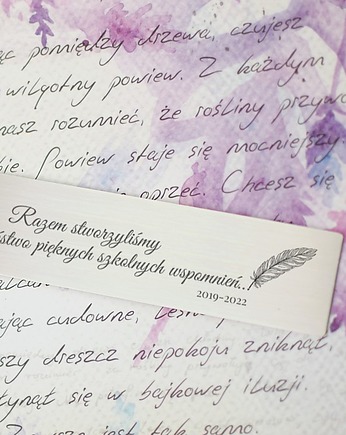 pomiędzy drzewa, czujesz
wilgotny powiew. Z każdym
rozumieć, że rośliny
Powiew staje się mocniejszy
oprzeć. Chcesz się
Razem stworzyliśmy
pięknych szkolnych wspomnień...
2019-2022
cudowne,
dreszcz niepokoju zniknął,
się w bajkowej iluzji.
jest tak samo.